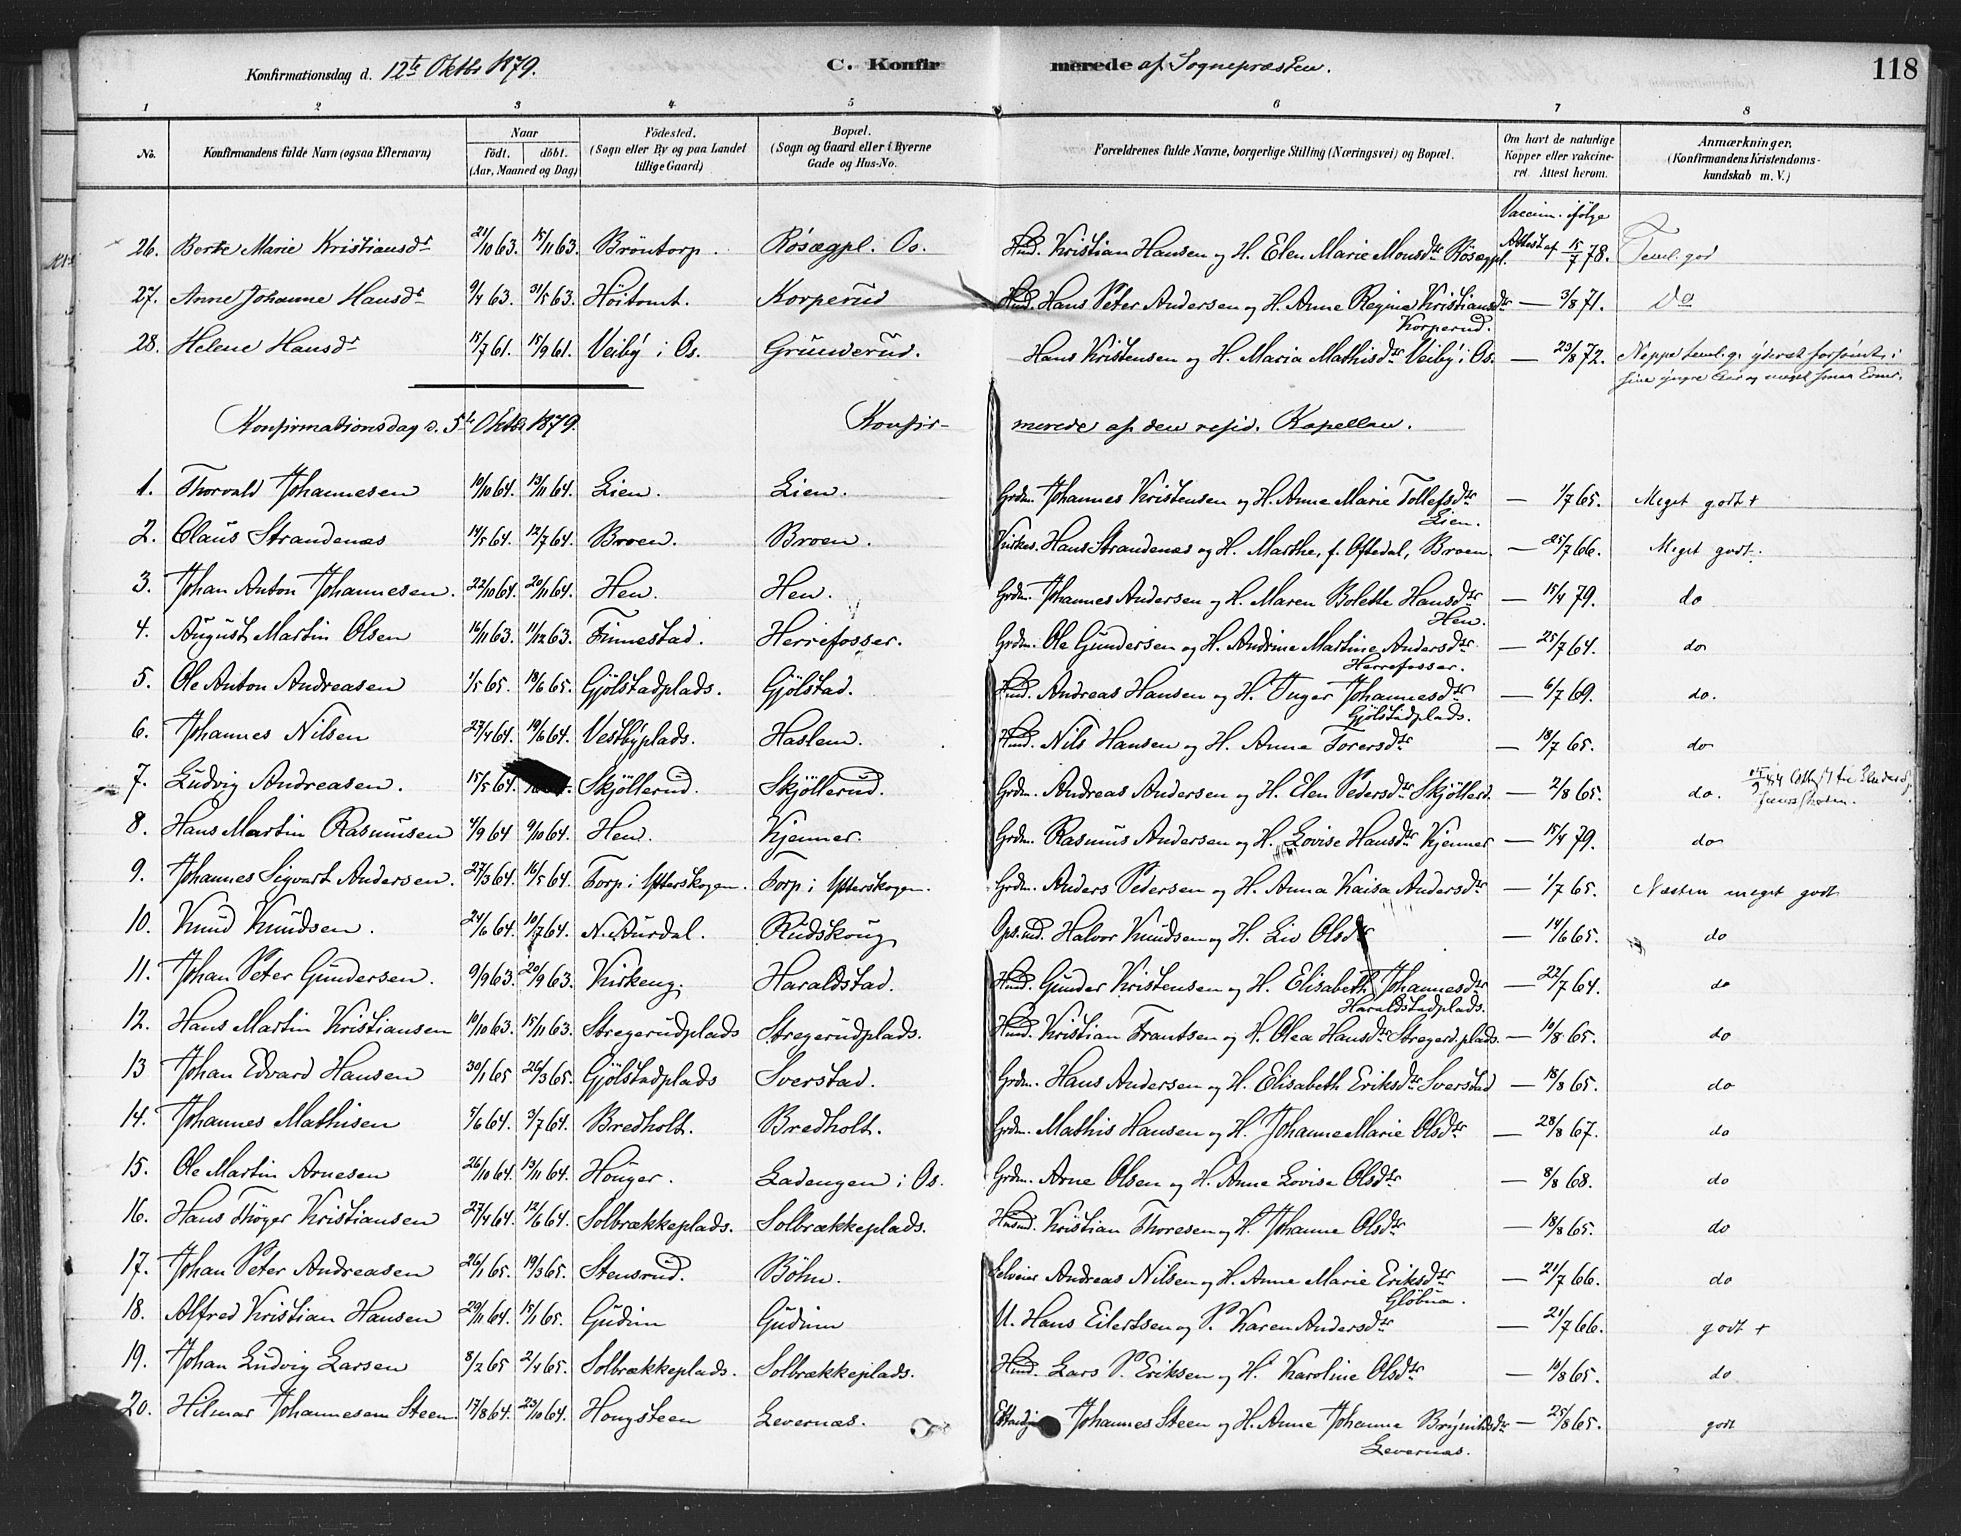 Konfirmationsdag d. 12te Oktbr 1879. C. Konfirmerede af Sognepræsten. 118
1 2 3 4 5 6 7 8
No. Konfirmandens fulde Navn (ogsaa Efternavn) Naar født. døbt. (Aar, Maaned og Dag) Födested. (Sogn eller By og paa Landet tillige Gaard) Bopæl. (Sogn og Gaard eller i Byerne Gade og Hus-No. Forældrenes fulde Navne, borgerlige Stilling (Næringsvei) og Bopæl. Om havt de naturlige Kopper eller vakcineret. Attest herom. Anmærkninger. (Konfirmandens Kristendomskundskab m. V.)
26. Berte Marie Kristiansdr 21/10 63. 15/11 63. Bröntorp. Røsægpl. Os. Hmd. Kristian Hansen og H. Elen Marie Monsdtr Røsægpl. Vaccin. ifølge Attest af 15/7 78. Temel. god
27. Anne Johanne Hansdr 9/4 63. 31/5 63. Höitomt. Korperud Hmd. Hans Peter Andersen og H. Anne Regine Kristiansdtr Korperud. — 3/8 71. Do
28. Helene Hansdr 15/7 61. 15/9 61. Veiby i Os. Grünerud. Hans Kristensen og H. Maria Mathisdtr Veiby i Os. — 23/8 72. Neppe temlig, yderst forsömt i sine yngre Aar og meget smaa Evner.
Konfirmationsdag d. 5te Oktbr 1879. Konfirmerede af den resid. Kapellan.
1. Thorvald Johannesen 10/10 64. 13/11 64. Lien. Lien. Grdm. Johannes Kristensen og H. Anne Marie Tollefsdtr Lien. — 1/7 65. Meget godt +
2. Olaus Strandenæs 14/5 64. 12/7 64. Broen. Broen. Hans Strandenæs og H. Marthe, f. Oftedal, Broen. — 25/7 66. Meget godt.
3. Johan Anton Johannesen. 22/10 64. 20/11 64. Hen. Hen. Grdm. Johannes Andersen og H. Maren Bolette Hansdtr Hen. — 15/4 79. do
4. August Martin Olsen 16/11 63. 11/12 63. Finnestad. Herrefosser. Grdm. Ole Gundersen og H. Andrine Martine Andersdtr Herrefosser. — 25/7 64. do
5. Ole Anton Andreasen 1/5 65. 18/6 65. Gjölstadplads. Gjölstad. Hmd. Andreas Hansen og H. Inger Johannesdtr Gjölstadplads. — 6/7 69. do.
6. Johannes Nilsen 27/4 64. 19/6 64. Vestbyplads. Haslem. Hmd. Nils Hansen og H. Anne Torersdtr — 18/7 65. do
7. Ludvig Andreasen. 15/5 64. Skjöllerud. Skjöllerud. Grdm. Andreas Andersen og H. Elen Pedersdtr Skjöllerd. — 2/8 65. do.
8. Hans Martin Rasmusen 4/9 64 9/10 64. Hen. Kjenner. Grdm. Rasmus Andersen og H. Lovise Hansdtr Kjenner — 15/4 79. do
9. Johannes Sigvart Andersen. 27/3 64. 16/5 64. Torp i Ytterskogen. Torp i Ytterskogen. Grdm. Anders Pedersen og H. Anna Kaisa Andersdtr — 1/7 65. Næsten meget godt
10. Knud Knudsen. 24/6 64. 10/7 64. N. Aurdal. Rudskoug Ops.md. Halvor Knudsen og H. Liv Olsdtr — 14/6 65. do
11. Johan Peter Gundersen. 9/9 63. 20/9 63. Kirkeng. Haraldstad. Hmd. Gunder Kristensen og H. Elisabeth Johannesdtr Haraldstadplads. — 22/7 64. do
12. Hans Martin Kristiansen 10/10 63. 15/11 63. Stregerudplads Stregerudplads. Hmd. Kristian Frantsen og H. Olea Hansdtr Stregerd.plads. — 10/8 65. do
13 Johan Edvard Hansen 30/1 65 26/3 65. Gjölstadplads Sverstad. Grdm. Hans Andersen og H. Elisabeth Eriksdtr Sverstad — 18/8 65. do
14. Johannes Mathisen 7/6 64. 3/7 64. Bredholt. Bredholt. Grdm. Mathis Hansen og H. Johanne Marie Olsdtr — 28/8 67. do
15. Ole Martin Arnesen 26/10 64. 13/11 64. Höuger. Ladengen i Os. Grdm. Arne Olsen og H. Anne Lovise Olsdtr — 8/8 68. do
16. Hans Thöger Kristiansen 27/4 64. 12/6 64. Solbrækkeplads. Solbrækkeplads. Husmd. Kristian Thoresen og H. Johanne Olsdtr — 18/8 65. do
17. Johan Peter Andreasen 26/1 65. 19/3 65. Stensrud. Böhn. Selveier Andreas Nilsen og H. Anne Marie Eriksdtr Glöbna. — 21/7 66. do
18. Alfred Kristian Hansen 29/11 64. 15/1 65. Gudim Gudim U. Hans Eilertsen og P. Karen Andersdtr — 21/7 66. godt +
19. Johan Ludvig Larsen 8/2 65 2/4 65. Solbrækkeplads. Solbrækkeplads. Hmd. Lars P. Eriksen og H. Karoline Olsdtr — 10/8 65. do
20. Hilmar Johannesen Steen. 17/8 64. 23/10 64. Hougsteen Levernæs. Johannes Steen og H. Anne Johanne Brynildsdtr Levernæs. — 25/8 65. godt